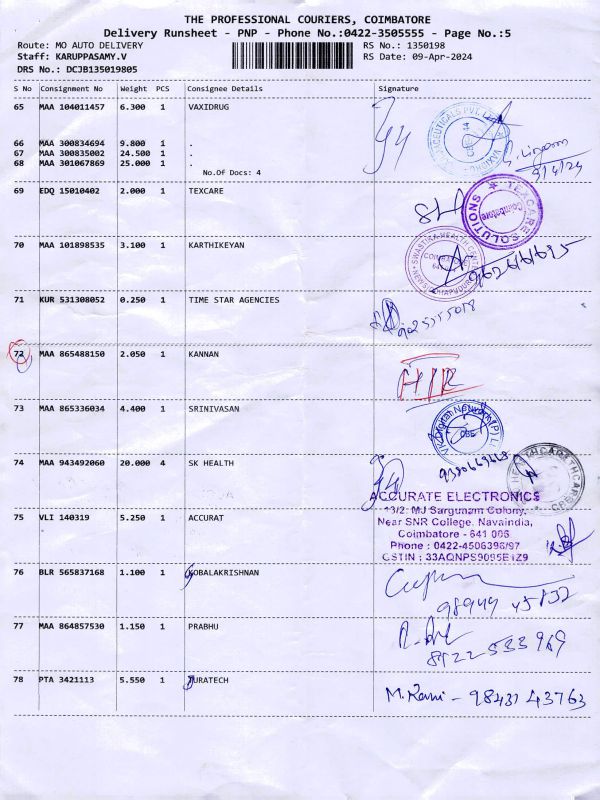 THE PROFESSIONAL COURIERS, COIMBATORE
Delivery Runsheet - PNP - Phone No.:0422-3505555 - Page No.:5
Route: MO AUTO DELIVERY
RS No.: 1350198
Staff: KARUPPASAMY.V
RS Date: 09-Apr-2024
DRS No.: DCJB135019805
S No Consignment No Weight PCS Consignee Details Signature
65 MAA 104011457 6.300 1 VAXIDRUG
66 MAA 300834694 9.800 1 .
67 MAA 300835002 24.500 1 .
68 MAA 301067869 25.000 1 .
No.Of Docs: 4
9/4/24
69 EDQ 15010402 2.000 1 TEXCARE
TEXCARE SOLUTIONS
Coimbatore
70 MAA 101898535 3.100 1 KARTHIKEYAN
SWASTIKA HEALTH
71 KUR 531308052 0.250 1 TIME STAR AGENCIES
72 MAA 865488150 2.050 1 KANNAN
73 MAA 865336034 4.400 1 SRINIVASAN
74 MAA 943492060 20.000 4 SK HEALTH
ACCURATE ELECTRONICS
13/2. MJ Sargunam Colony,
Near SNR College, Navaindia,
Coimbatore - 641 006
Phone : 0422-4506396/97
GSTIN : 33AQNPS9095E1Z9
75 VLI 140319 5.250 1 ACCURAT
76 BLR 565837168 1.100 1 GOBALAKRISHNAN
77 MAA 864857530 1.150 1 PRABHU
8122 533 969
78 PTA 3421113 5.550 1 DURATECH
M. Rani - 98431 43763